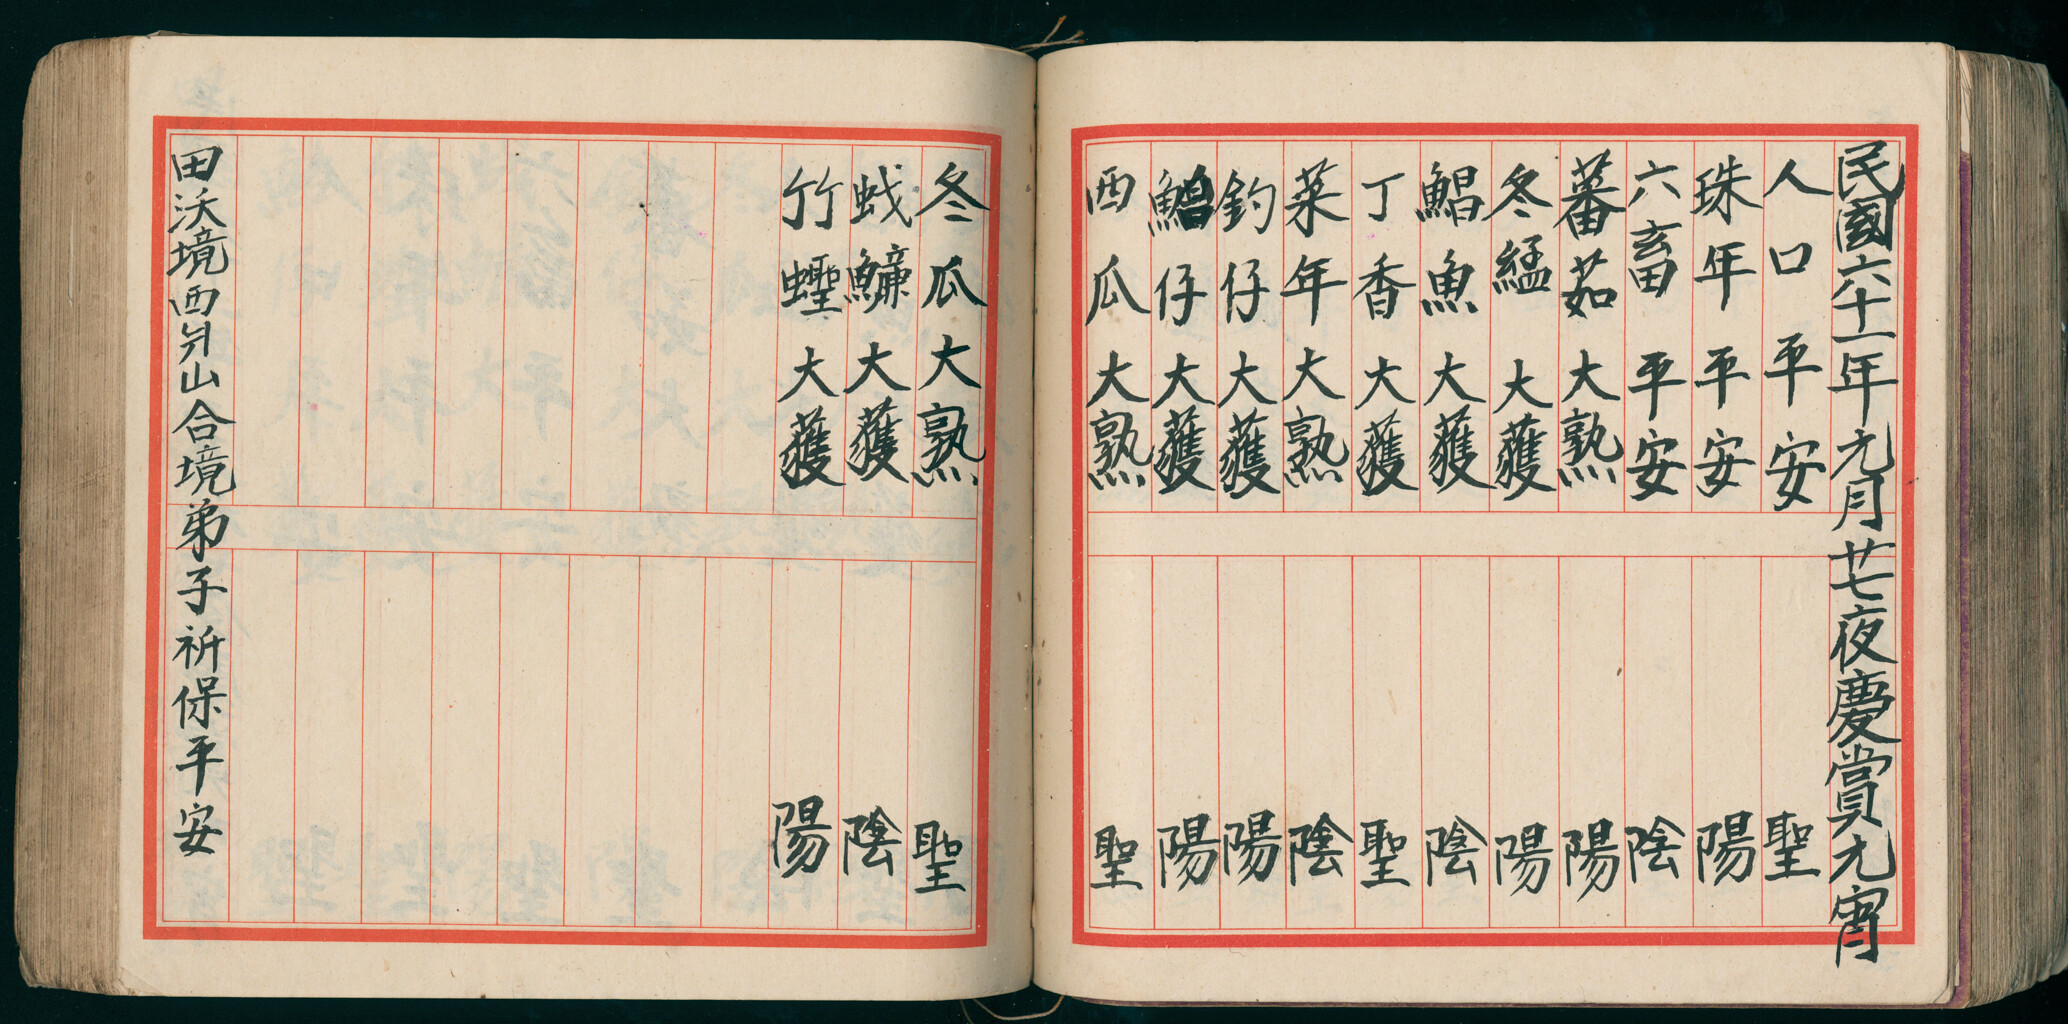 民國六十一年元月廿七夜慶賞元宵
人口平安 聖
珠年平安 陽
六畜平安 陰
蕃茹大熟 陽
冬艋大獲 陽
鯧魚大獲 陰
丁香大獲 聖
菜年大熟 陰
釣仔大獲 陽
仔大獲 陽
西瓜大熟 聖
冬瓜大熟 聖
大獲 陰
竹蟶大獲 陽
田沃境西山合境弟子祈保平安